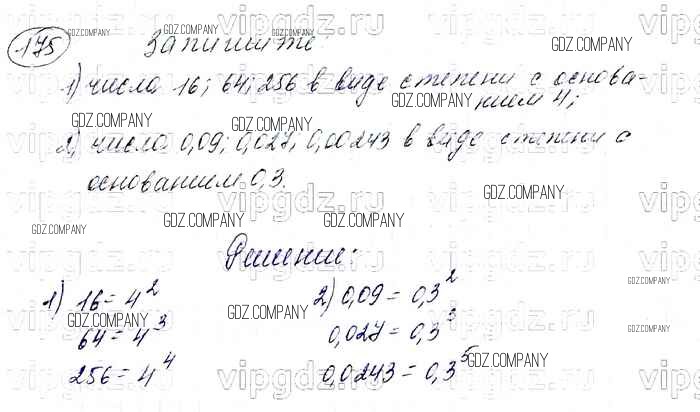 175 Запишите:
1) числа 16; 64; 256 в виде степени с основа-
нием 4;
2) числа 0,09; 0,027; 0,00243 в виде степени с
основанием 0,3.
Решение:
1) 16 = 4² 2) 0,09 = 0,3²
64 = 4³ 0,027 = 0,3³
256 = 4⁴ 0,0243 = 0,3⁵
vipgdz.ru
GDZ.COMPANY